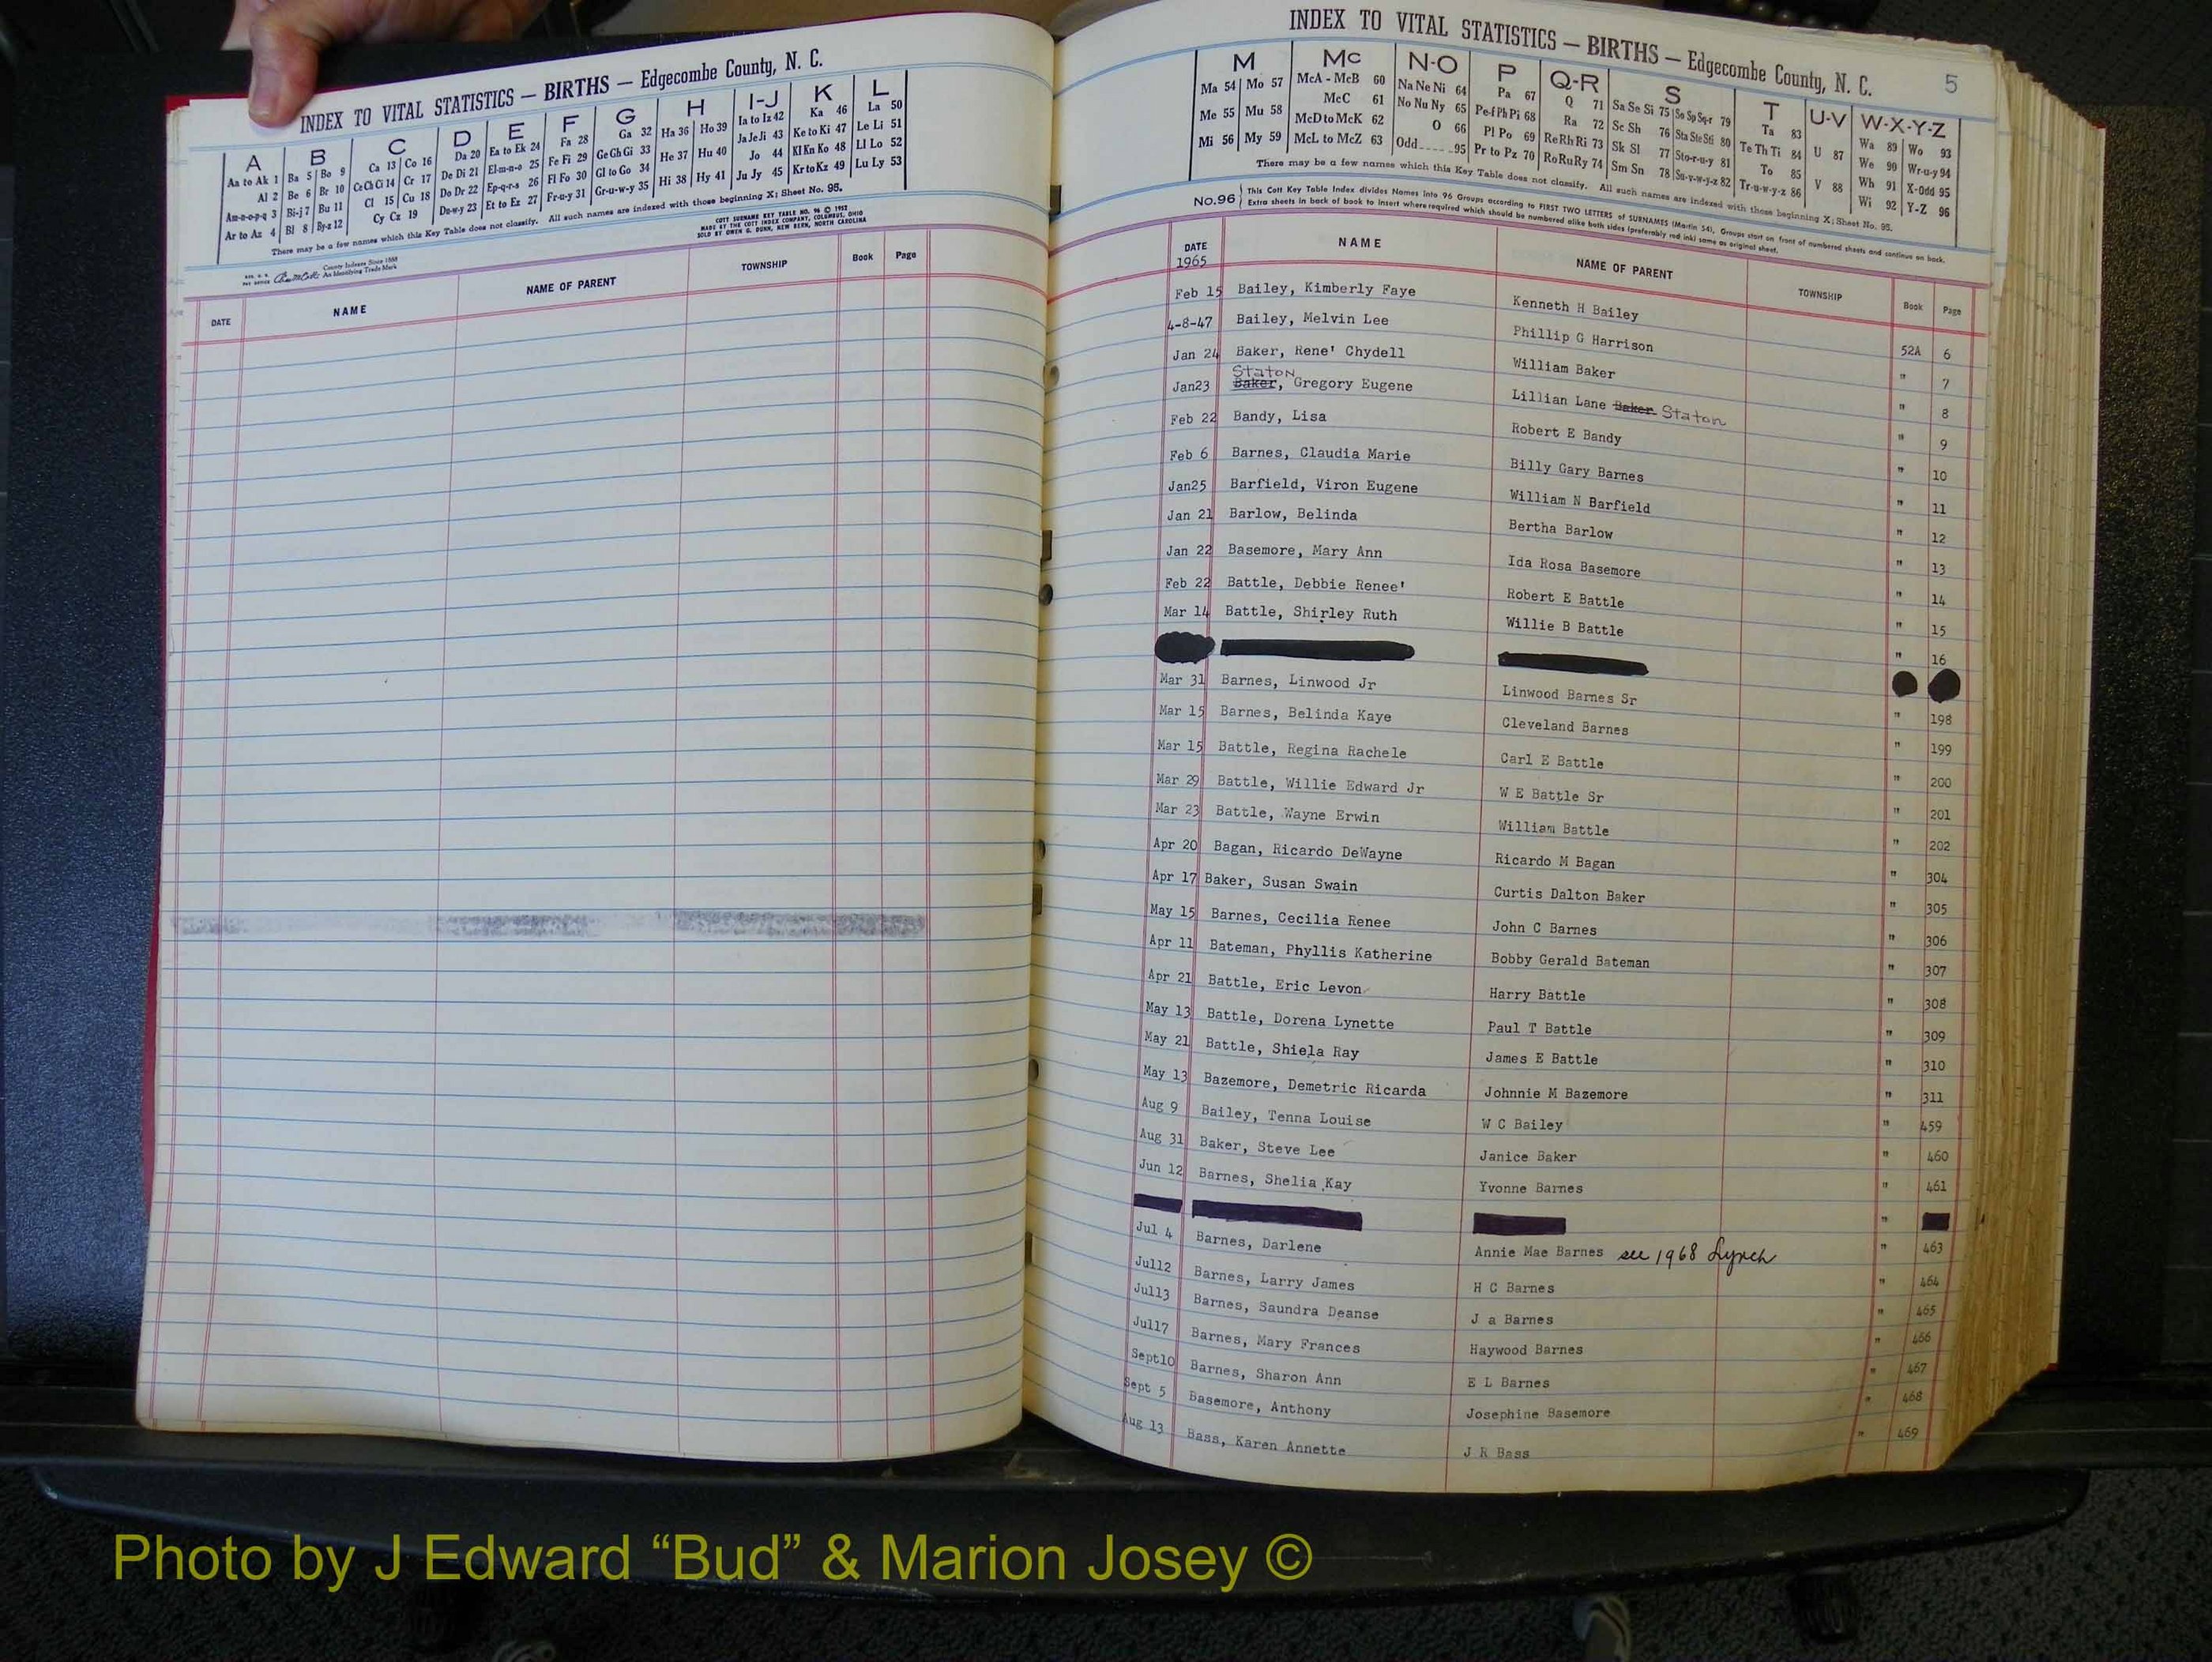 INDEX TO VITAL STATISTICS — BIRTHS — Edgecombe County, N. C.
A B C D E F G H I-J K L
Aa to Ak 1 Ba 5 Bo 9 Ca 13 Co 16 Da 20 Ea to Ek 24 Fa 28 Ga 32 Ha 36 Ho 39 Ia to Iz 42 Ka 46 La 50
Al 2 Be 6 Br 10 Ce Ch Ci 14 Cr 17 De Di 21 El-m-n-o 25 Fe Fi 29 Ge Gh Gi 33 He 37 Hu 40 Ja Je Ji 43 Ke to Ki 47 Le Li 51
Am-n-o-p-q 3 Bi-j 7 Bu 11 Cl 15 Cu 18 Do Dr 22 Ep-q-r-s 26 Fl Fo 30 Gl to Go 34 Hi 38 Hy 41 Jo 44 Kl Kn Ko 48 Ll Lo 52
Ar to Az 4 Bl 8 By-z 12 Cy Cz 19 Du-w-y 23 Et to Ez 27 Fr-u-y 31 Gr-u-w-y 35 Ju Jy 45 Kr to Kz 49 Lu Ly 53
There may be a few names which this Key Table does not classify. All such names are indexed with those beginning X; Sheet No. 95.
COTT SURNAME KEY TABLE NO. 96 © 1952
MADE BY THE COTT INDEX COMPANY, COLUMBUS, OHIO
SOLD BY OWEN G. DUNN, NEW BERN, NORTH CAROLINA
County Indexes Since 1888
An Identifying Trade Mark
DATE NAME NAME OF PARENT TOWNSHIP Book Page
INDEX TO VITAL STATISTICS — BIRTHS — Edgecombe County, N. C. 5
M Mc N-O P Q-R S T U-V W-X-Y-Z
Ma 54 Mo 57 McA - McB 60 Na Ne Ni 64 Pa 67 Q 71 Sa Se Si 75 So Sp Sq-r 79 Ta 83 Wa 89 Wo 93
Me 55 Mu 58 McC 61 No Nu Ny 65 Pe-f Ph Pi 68 Ra 72 Sc Sh 76 Sta Ste Sti 80 Te Th Ti 84 U 87 We 90 Wr-u-y 94
Mi 56 My 59 McD to McK 62 O 66 Pl Po 69 Re Rh Ri 73 Sk Sl 77 Sto-r-u-y 81 To 85 V 88 Wh 91 X-Odd 95
McL to McZ 63 Odd 95 Pr to Pz 70 Ro Ru Ry 74 Sm Sn 78 Su-v-w-y-z 82 Tr-u-w-y-z 86 Wi 92 Y-Z 96
There may be a few names which this Key Table does not classify. All such names are indexed with those beginning X; Sheet No. 95.
No. 96 This Cott Key Table Index divides Names into 96 Groups according to FIRST TWO LETTERS of SURNAMES (Martin 54). Groups start on front of numbered sheets and continue on back.
Extra sheets in back of book to insert where required which should be numbered alike both sides (preferably red ink) same as original sheet.
DATE NAME NAME OF PARENT TOWNSHIP Book Page
1965
Feb 15 Bailey, Kimberly Faye Kenneth H Bailey 52A 6
4-8-47 Bailey, Melvin Lee Phillip G Harrison " 7
Jan 24 Baker, Rene' Chydell William Baker " 8
Staton
Jan23 Baker, Gregory Eugene Lillian Lane Baker Staton " 9
Feb 22 Bandy, Lisa Robert E Bandy " 10
Feb 6 Barnes, Claudia Marie Billy Gary Barnes " 11
Jan25 Barfield, Viron Eugene William N Barfield " 12
Jan 21 Barlow, Belinda Bertha Barlow " 13
Jan 22 Basemore, Mary Ann Ida Rosa Basemore " 14
Feb 22 Battle, Debbie Renee' Robert E Battle " 15
Mar 14 Battle, Shirley Ruth Willie B Battle " 16
Mar 31 Barnes, Linwood Jr Linwood Barnes Sr " 198
Mar 15 Barnes, Belinda Kaye Cleveland Barnes " 199
Mar 15 Battle, Regina Rachele Carl E Battle " 200
Mar 29 Battle, Willie Edward Jr W E Battle Sr " 201
Mar 23 Battle, Wayne Erwin William Battle " 202
Apr 20 Bagan, Ricardo DeWayne Ricardo M Bagan " 304
Apr 17 Baker, Susan Swain Curtis Dalton Baker " 305
May 15 Barnes, Cecilia Renee John C Barnes " 306
Apr 11 Bateman, Phyllis Katherine Bobby Gerald Bateman " 307
Apr 21 Battle, Eric Levon Harry Battle " 308
May 13 Battle, Dorena Lynette Paul T Battle " 309
May 21 Battle, Shiela Ray James E Battle " 310
May 13 Bazemore, Demetric Ricarda Johnnie M Bazemore " 311
Aug 9 Bailey, Tenna Louise W C Bailey " 459
Aug 31 Baker, Steve Lee Janice Baker " 460
Jun 12 Barnes, Shelia Kay Yvonne Barnes " 461
"
Jul 4 Barnes, Darlene Annie Mae Barnes see 1968 Lynch " 463
Jul12 Barnes, Larry James H C Barnes " 464
Jul13 Barnes, Saundra Deanse J a Barnes " 465
Jul17 Barnes, Mary Frances Haywood Barnes " 466
Sept10 Barnes, Sharon Ann E L Barnes " 467
Sept 5 Basemore, Anthony Josephine Basemore " 468
Aug 13 Bass, Karen Annette J R Bass " 469
Photo by J Edward “Bud” & Marion Josey ©